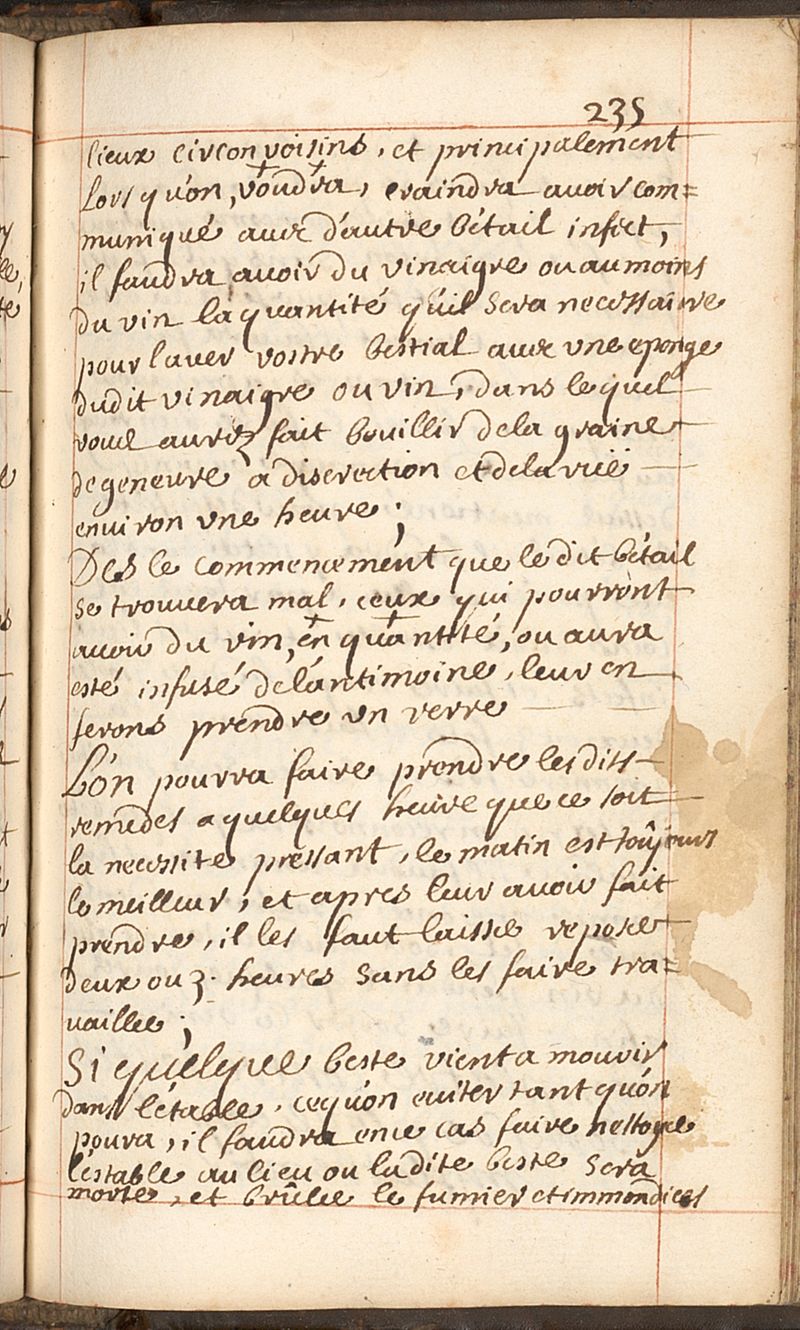 235
lieux circonvoisins, et principalement
Lors qu'on, voudra, craindra avoir com=
muniqué avec d'autre bétail infect,
il faudra avoir du vinaigre ou au moins
du vin la quantité qu'il sera necessaire
pour laver vostre bestial avec une eponge
dudit vinaigre ou vin, dans lequel
vous aurez fait bouillir de la graine
de genevre a discrection et de la rüe
environ une heure;
Des le commencement que le dit bétail
se trouvera mal, ceux qui pourront
avoir du vin, en quantité, ou aura
esté infusé de lántimoine, leur en
ferons prendre un verre
L'on pourra faire prendre lesdits
remedes a quelques heure que ce soit
la necessite pressant, le matin est toûjours
le meilleur, et apres leur avoir fait
prendre, il les faut laisser reposer
deux ou 3. heures sans les faire tra=
vailler;
Si quelque beste vient a mourir
dans l'étable, ce qu'on eviter tant qu'on
poura, il faudra en ce cas faire nettoyer
l'éstable au lieu ou ladite beste sera
morte, et brûler le fumier et immondices